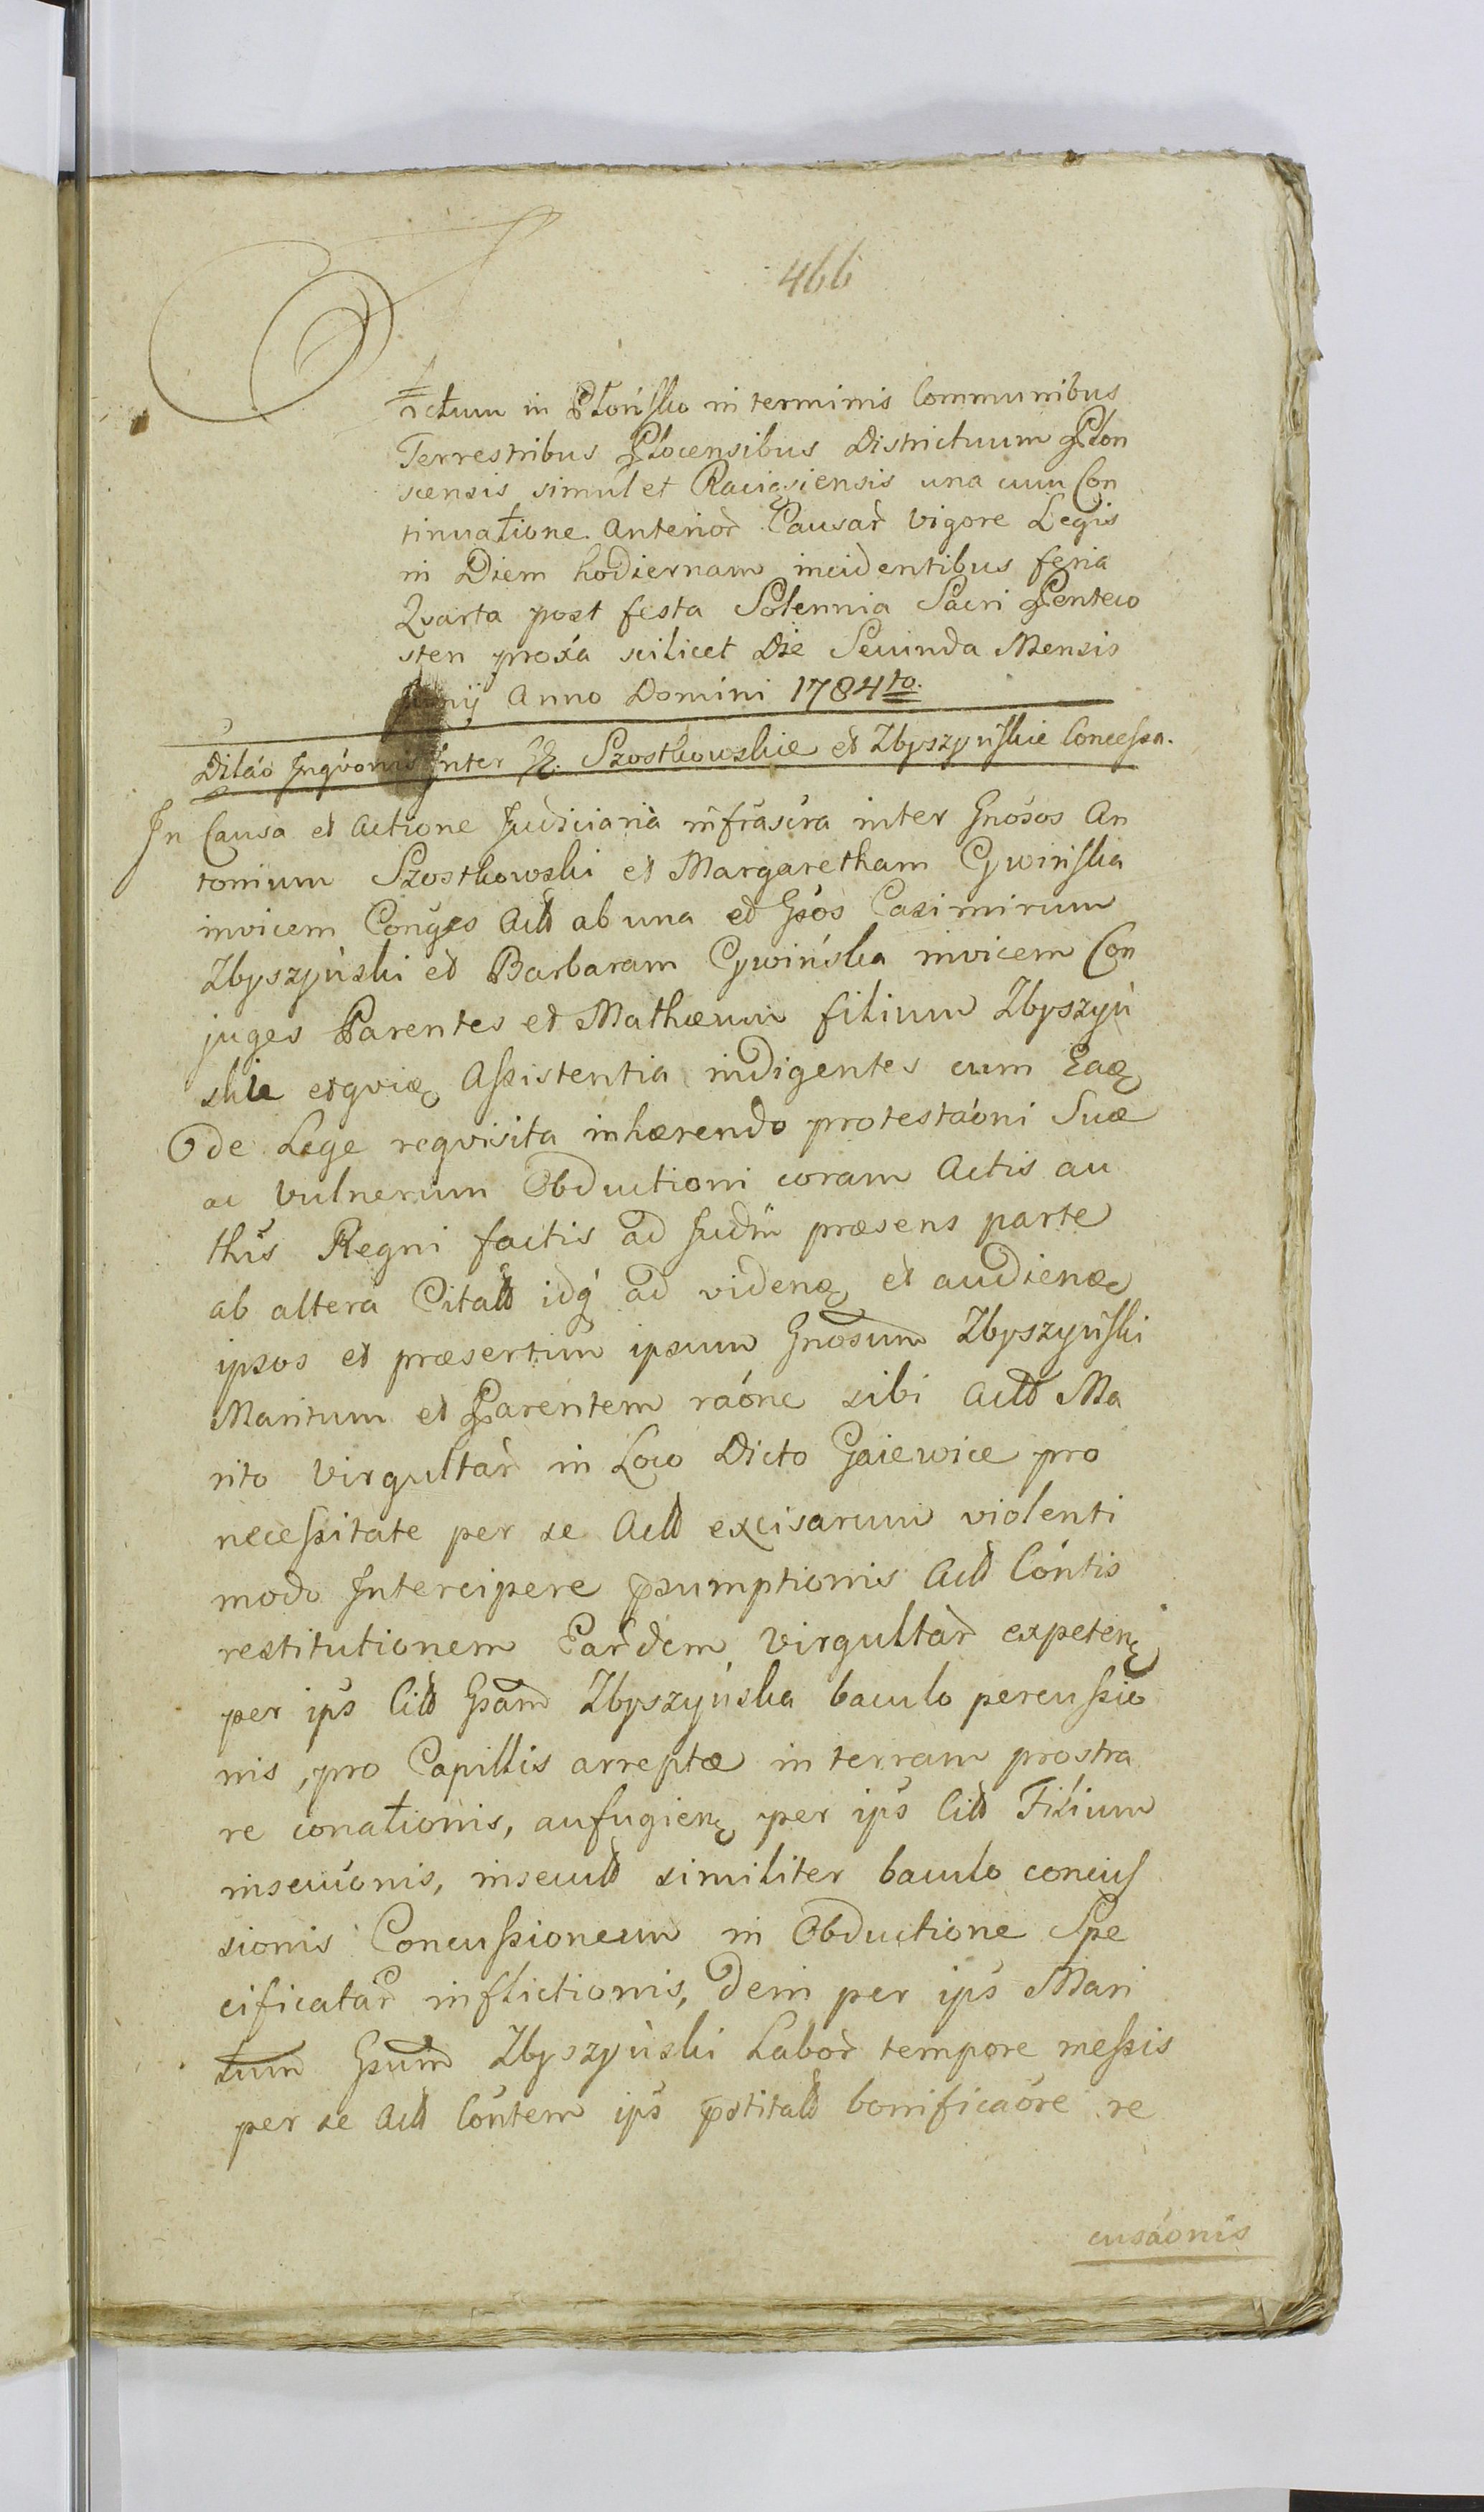 466
Actum in Płońsko in terminis Communibus
Terrestribus Plocensibus Districtuum Plon
scensis simul et Raciąsiensis una cum Con
tinuatione Anterior Causar vigore Legis
in Diem hodiernam incidentibus feria
Quarta post festa Solennia Sacri Penteco
sten proxá scilicet Die Secunda Mensis
Junij Anno Domini 1784to.
Diláo Inqvonis Inter GG. Szostkowskie et Zbyszyńskie Concessa.
In Causa et Actione Judiciaria infrascra inter Gnosos An
tonium Szostkowski et Margaretham Cywińska
invicem Conges Act ab una et Gsos Casimirum
Zbyszyński et Barbaram Cywińska invicem Con
juges Parentes et Mathæum filium Zbyszyń
skie Assistentia indigentes cum Eaq
de Lege reqvisita inhærendo protestáoni Suæ
ac vulnerum Obductioni coram Actis au
this Regni factis ad Judm præsens parte
ab altera Citatt idq ad videnq et audienq
ipsos et præsertim ipsum Gnosum Zbyszyński
Maritum et Parentem ráone sibi Act Ma
rito virgultar in Loco Dicto Gaiewice pro
necessitate per se Act excisarum violenti
modo Intercipere psumptionis Act Contis
restitutionem Eardem virgultar expetenq
per ips Citt Gsam Zbyszyńska baculo percussio
nis, pro Capillis arreptæ in terram prostra
re conationis, aufugienq per ips Citt Filium
insecuonis, insecutt similiter baculo concus
sionis Concussioneum in Obductione Spe
cificatar inflictionis, Dein per ips Mari
tum Gsum Zbyszyński Labor tempore messis
per se Act Contem ips pstitatt bonificaóre re
cusáonis